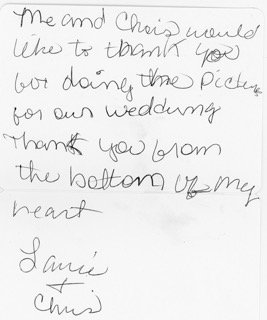 Me and Chris would
like to thank you
for doing the Picture
for our wedding
Thank you from
the bottom of my
heart
Laurie
+
Chris